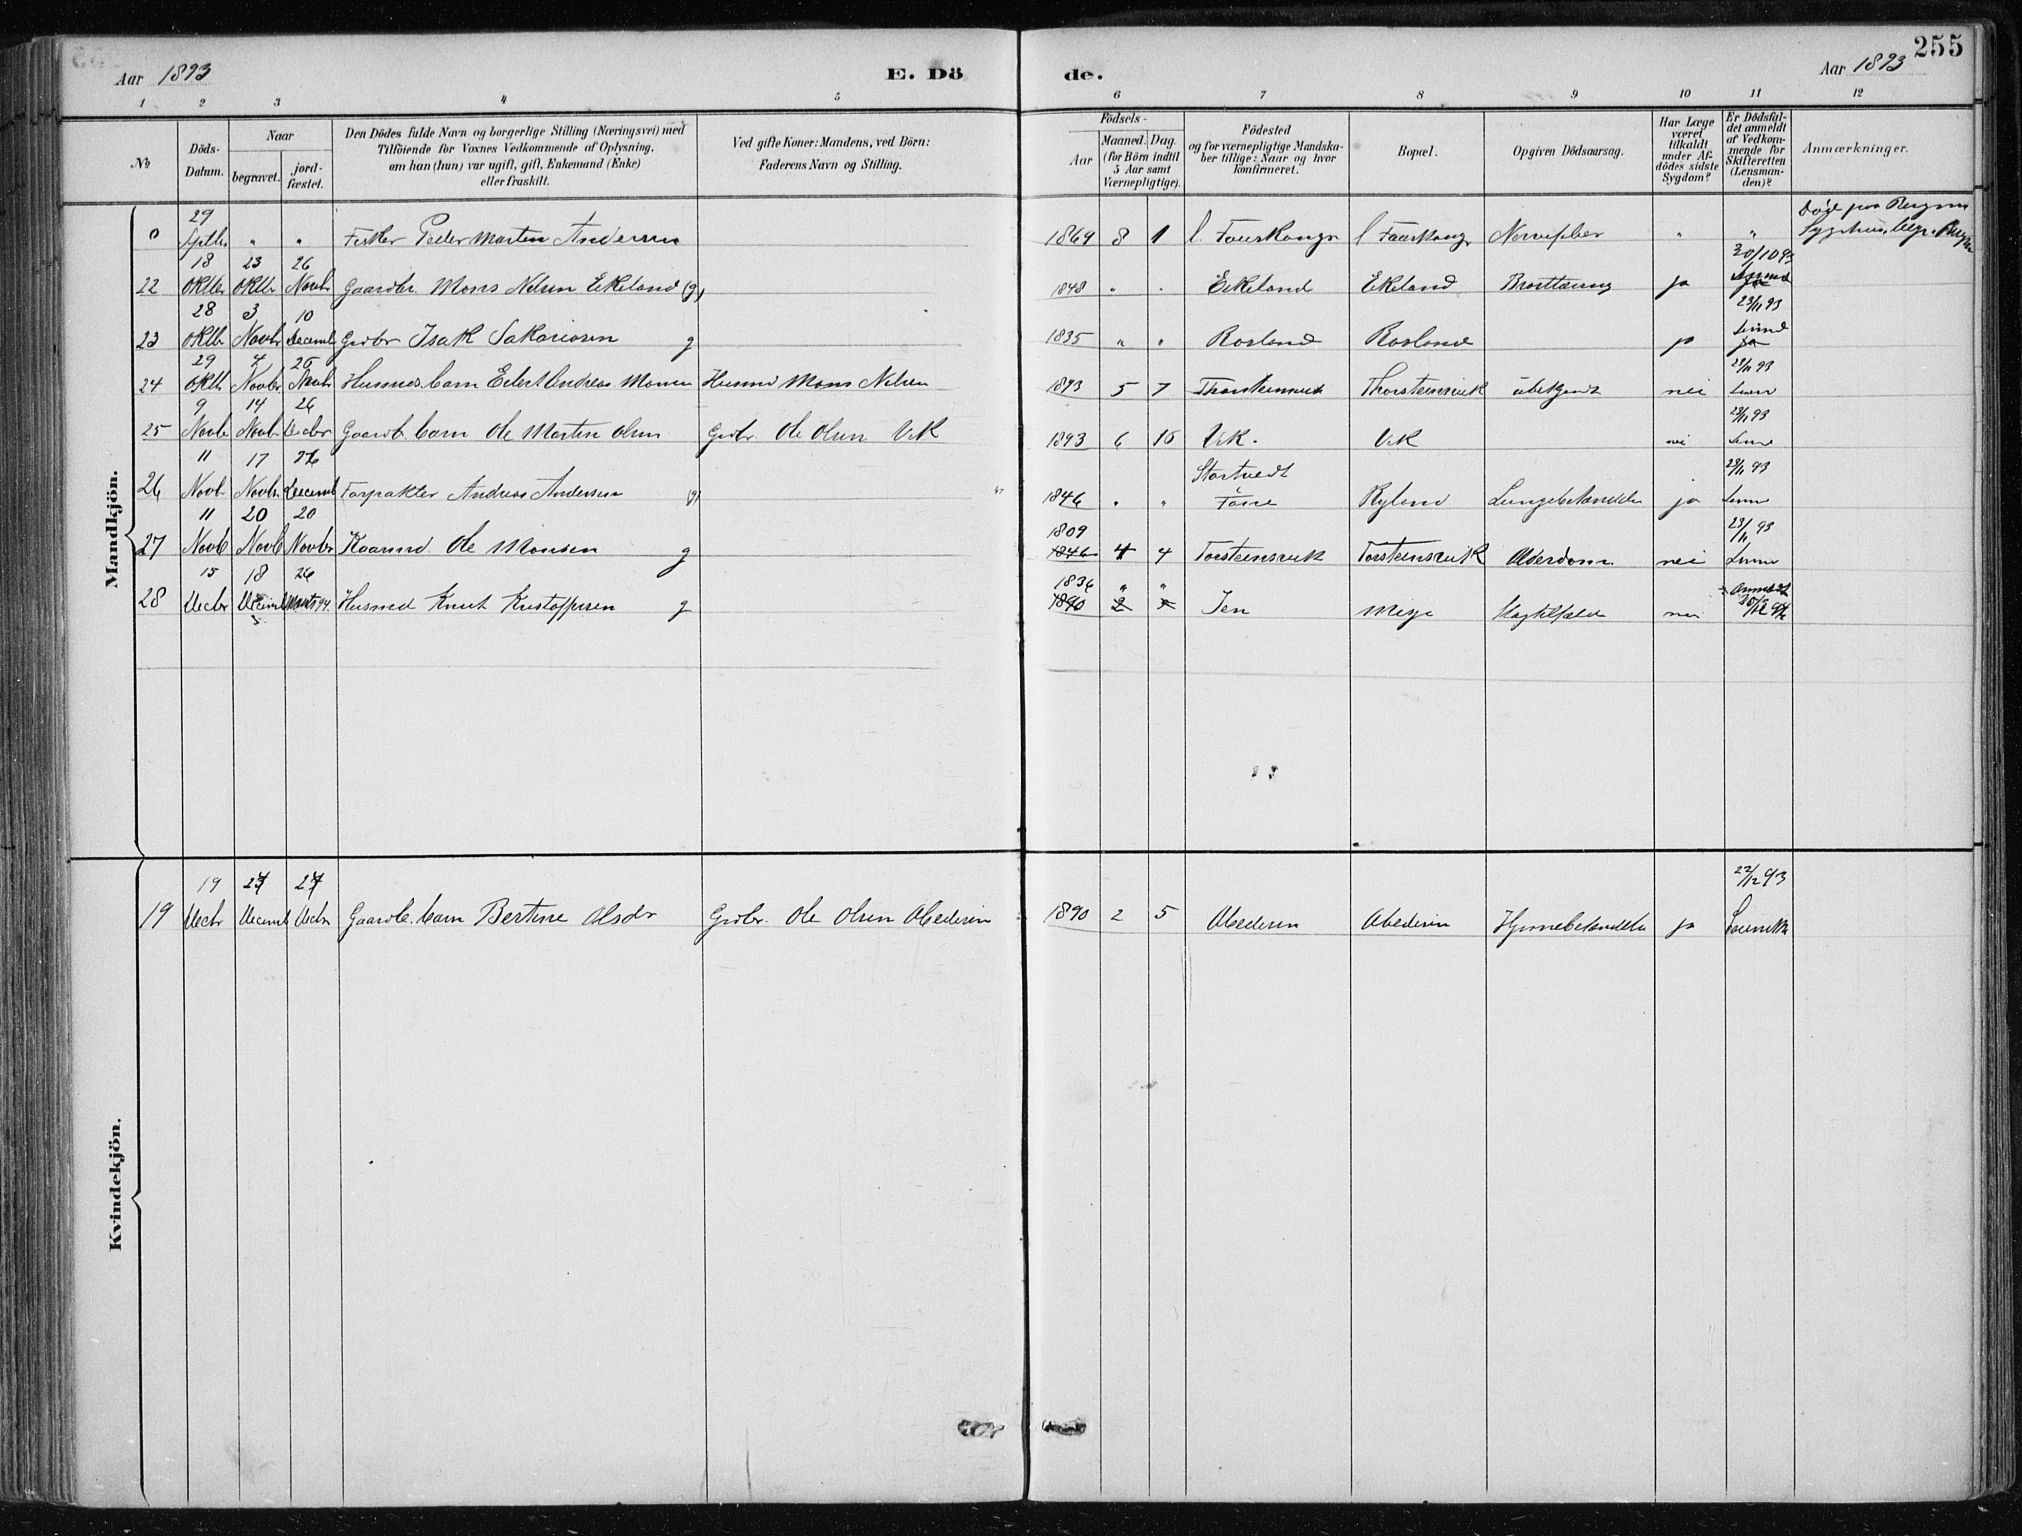 255
Aar 1893 E. Dö de. Aar 1893
1 2 3 4 5 6 7 8 9 10 11 12
№ Döds-Datum. Naar begravet. jord-fæstet. Den Dödes fulde Navn og borgerlige Stilling (Næringsvei) med Tilföiende for Voxnes Vedkommende af Oplysning, om han (hun) var ugift, gift, Enkemand (Enke) eller fraskilt. Ved gifte Koner: Mandens, ved Börn: Faderens Navn og Stilling. Födsels- Aar Maaned. Dag. (for Börn indtil 5 Aar samt Værnepligtige). Födested og for værnepligtige Mandskaber tillige: Naar og hvor konfirmeret. Bopæl. Opgiven Dödsaarsag. Har Læge været tilkaldt under Afdödes sidste Sygdom? Er Dödsfaldet anmeldt af Vedkommende for Skifteretten (Lensmanden)? Anmærkninger.
Mandkjön.
0 29 Septbr " " Fisker Peder Marten Andersen 1869 8 1 Nervefeber " " Døde paa Bergens Sygehus,
22 18 Oktbr 23 Oktbr 26 Novbr Gaardbr. Mons Nilsen Eikeland (g) 1848 " " Eikeland Eikeland Brysttæring ja 30/10 93
23 28 Oktbr 3 Novbr 10 Decemb Grdbr Isak Sakariasen g 1835 " " Rosland Rosland ja 23/11 93
24 29 Oktb 4 Novbr 26 Husmds. barn Eilert Andreas Monsen Husmd Mons Nilsen 1893 5 7 Thorsteinsvik Thorsteinsvik ubekjendt nei 23/11 93
25 9 Novbr 14 Novbr 26 Decbr Gaardb. barn Ole Marten Olsen Grdbr. Ole Olsen Vik 1893 6 15 Vik. Vik nei 23/11 93
26 11 Novb. 17 Novbr 26 Decemb Forpakter Andreas Andersen (g) 1846 " " Fane Ryland Lungebetændelse ja 23/11 93
27 11 Novb 20 Novb 20 Novbr Kaarmd. Ole Monsen g 1809 1846 4 4 Torsteinsvik Torsteinsvik Alderdom nei 23/11 93
28 15 Decbr 18 Decemb 26 Marts 94. Husmd Knut Kristoffersen g 1836 1890 " 2 " Jen Misje Slagtilfælde nei
Kvindekjön.
19 19 Decbr 27 Decemb 27 Decbr Gaardb. barn Bertine Olsdr Grdbr. Ole Olsen 1890 2 5 Hjernebetændelse ja 22/12 93